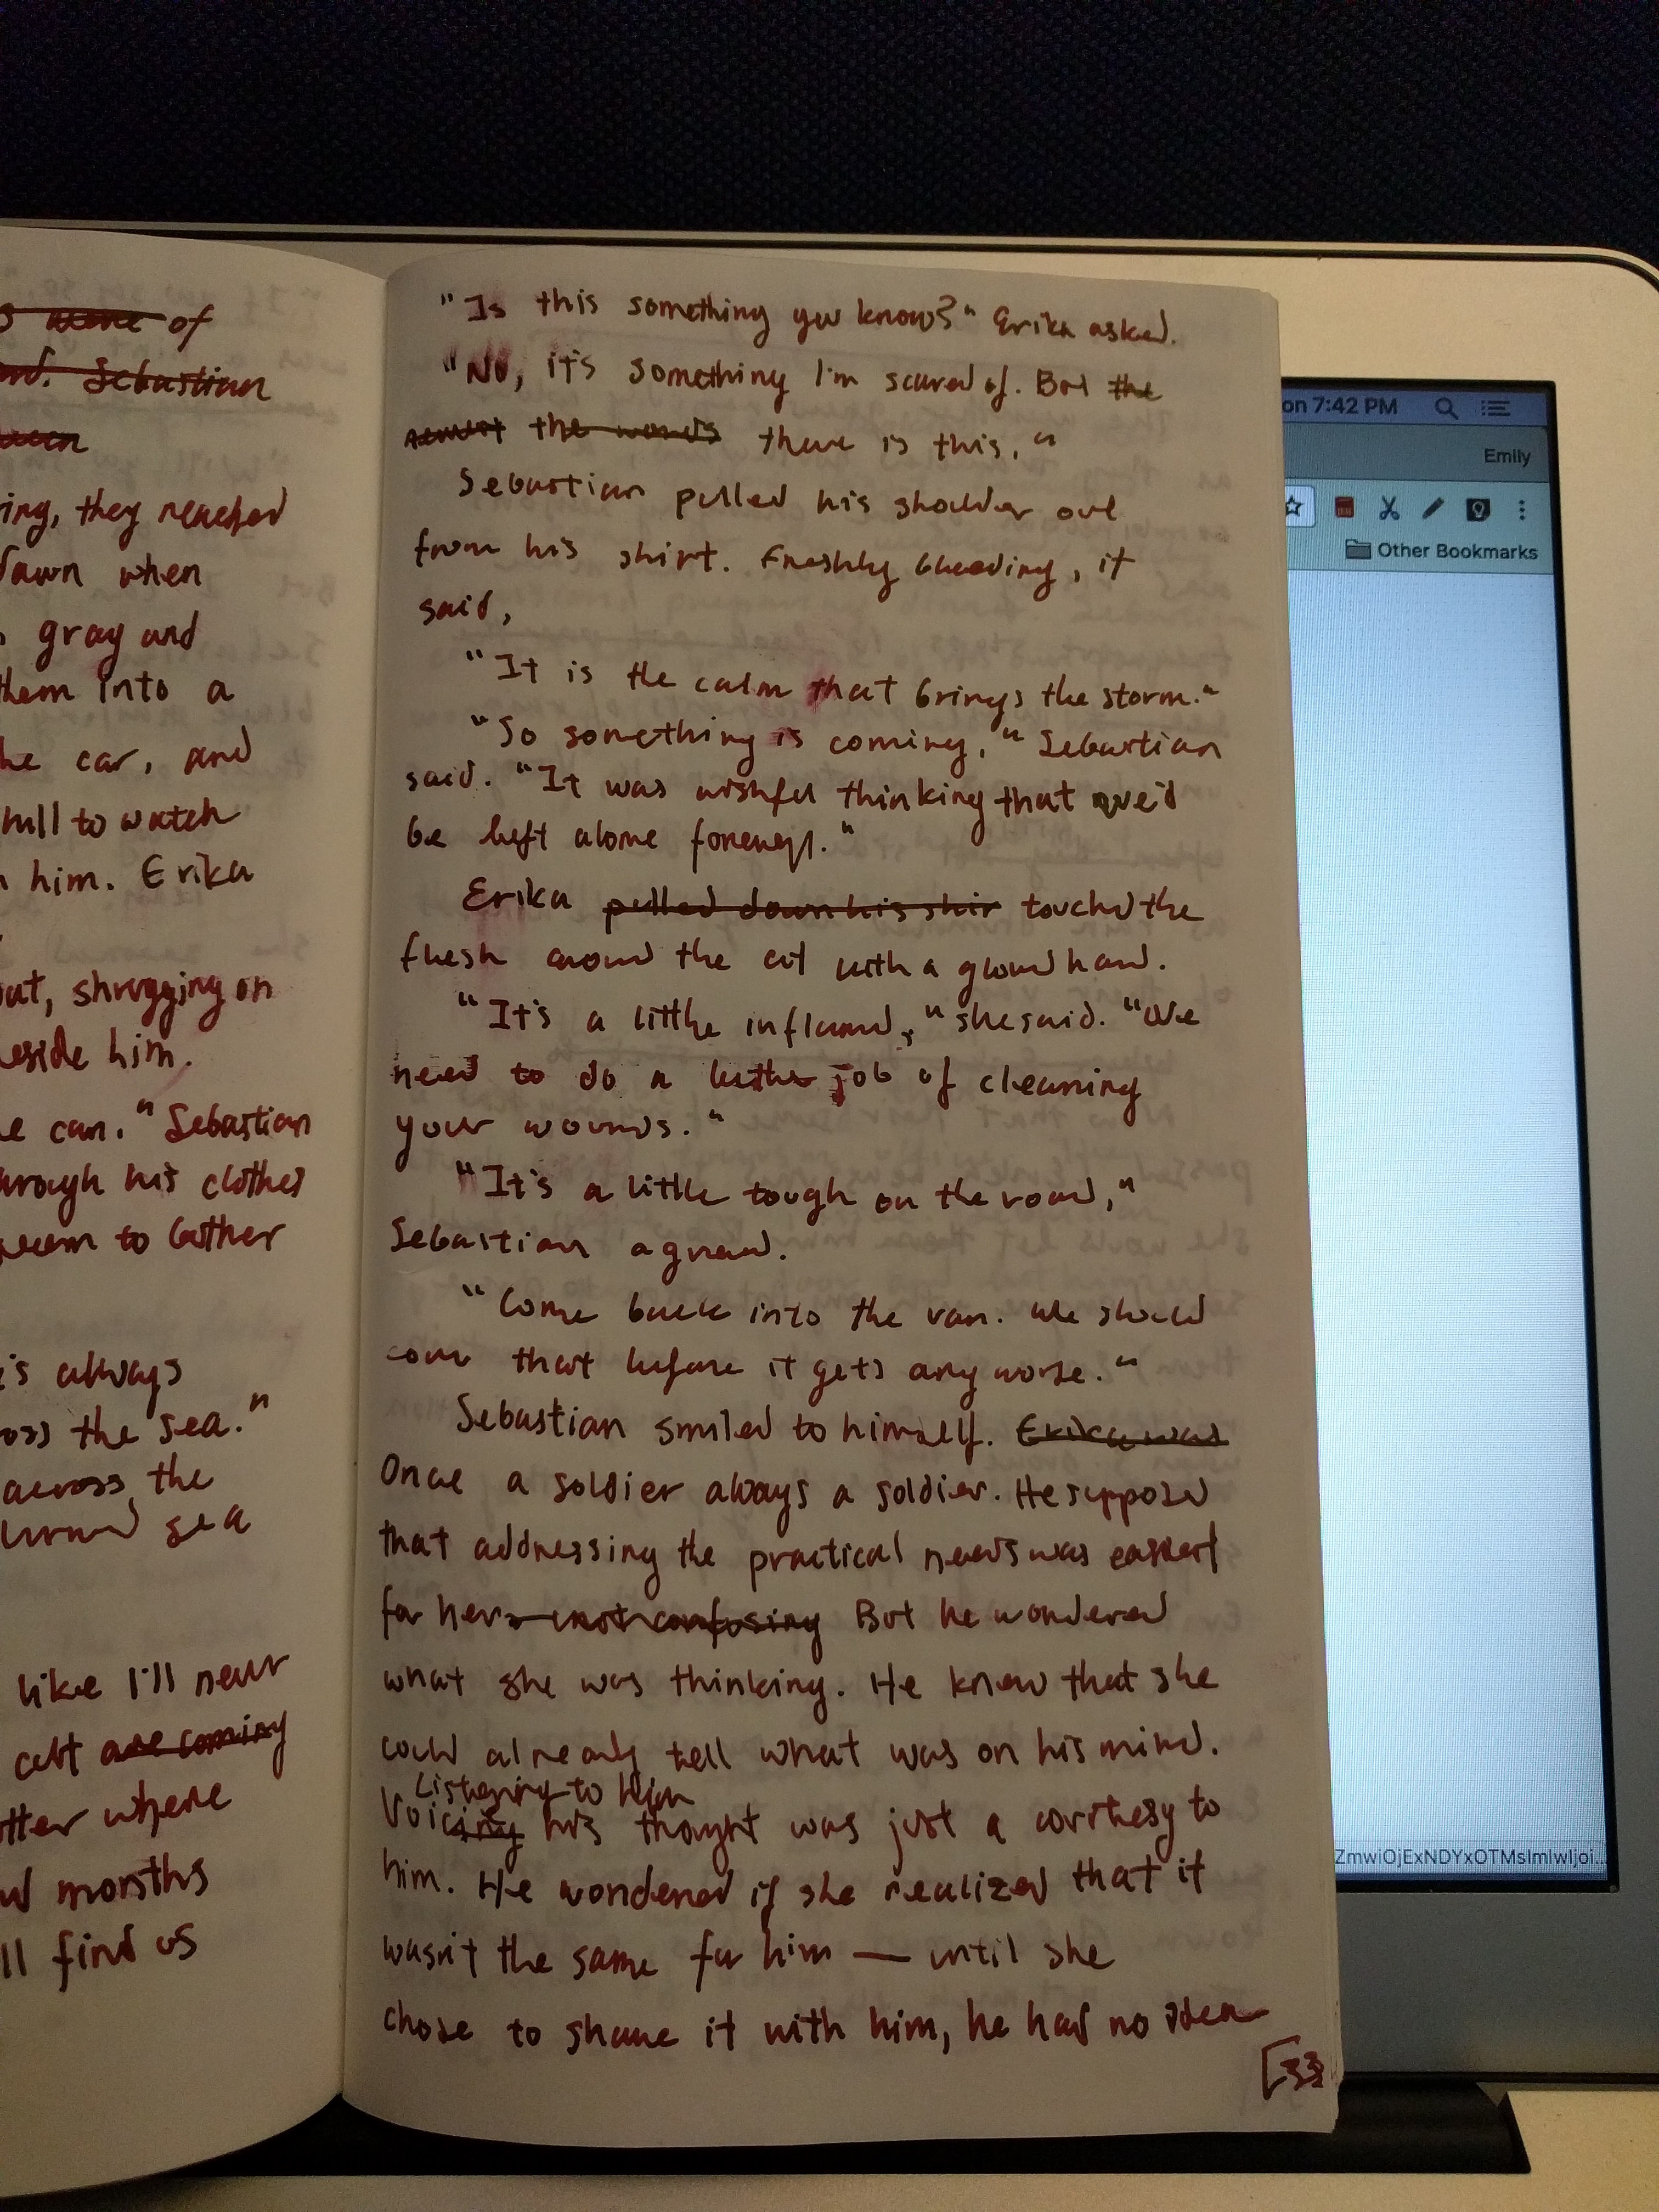 of
Sebastian
ing, they reached
dawn when
gray and
them into a
he car, and
hill to watch
him. Erika
out, shrugging on
eside him.
e can." Sebastian
hrough his clothes
seem to bother
is always
oss the sea."
across the
sea
like I'll never
cut are coming
tter where
months
ll find us
"Is this something you know?" Erika asked.
"No, it's something I'm scared of. But the
the words there is this,"
Sebastian pulled his shoulder out
from his shirt. Freshly bleeding, it
said,
"It is the calm that brings the storm."
"So something is coming," Sebastian
said. "It was wishful thinking that we'd
be left alone forever."
Erika pulled down his shir touched the
flesh around the cut with a gloved hand.
"It's a little inflamed," she said. "We
need to do a better job of cleaning
your wounds."
"It's a little tough on the road,"
Sebastian agreed.
"Come back into the van. We should
cover that before it gets any worse."
Sebastian smiled to himself. Erika was
Once a soldier always a soldier. He supposed
that addressing the practical needs was easiest
for her. not confusing But he wondered
what she was thinking. He knew that she
could already tell what was on his mind.
Listening to him
Voicing his thought was just a courtesy to
him. He wondered if she realized that it
wasn't the same for him — until she
chose to share it with him, he had no idea
[33
on 7:42 PM
Emily
Other Bookmarks
ZmwiOjExNDYxOTMsImlwIjoi...